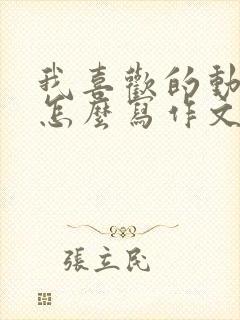 我喜歡的動
怎麼寫作文
張立民